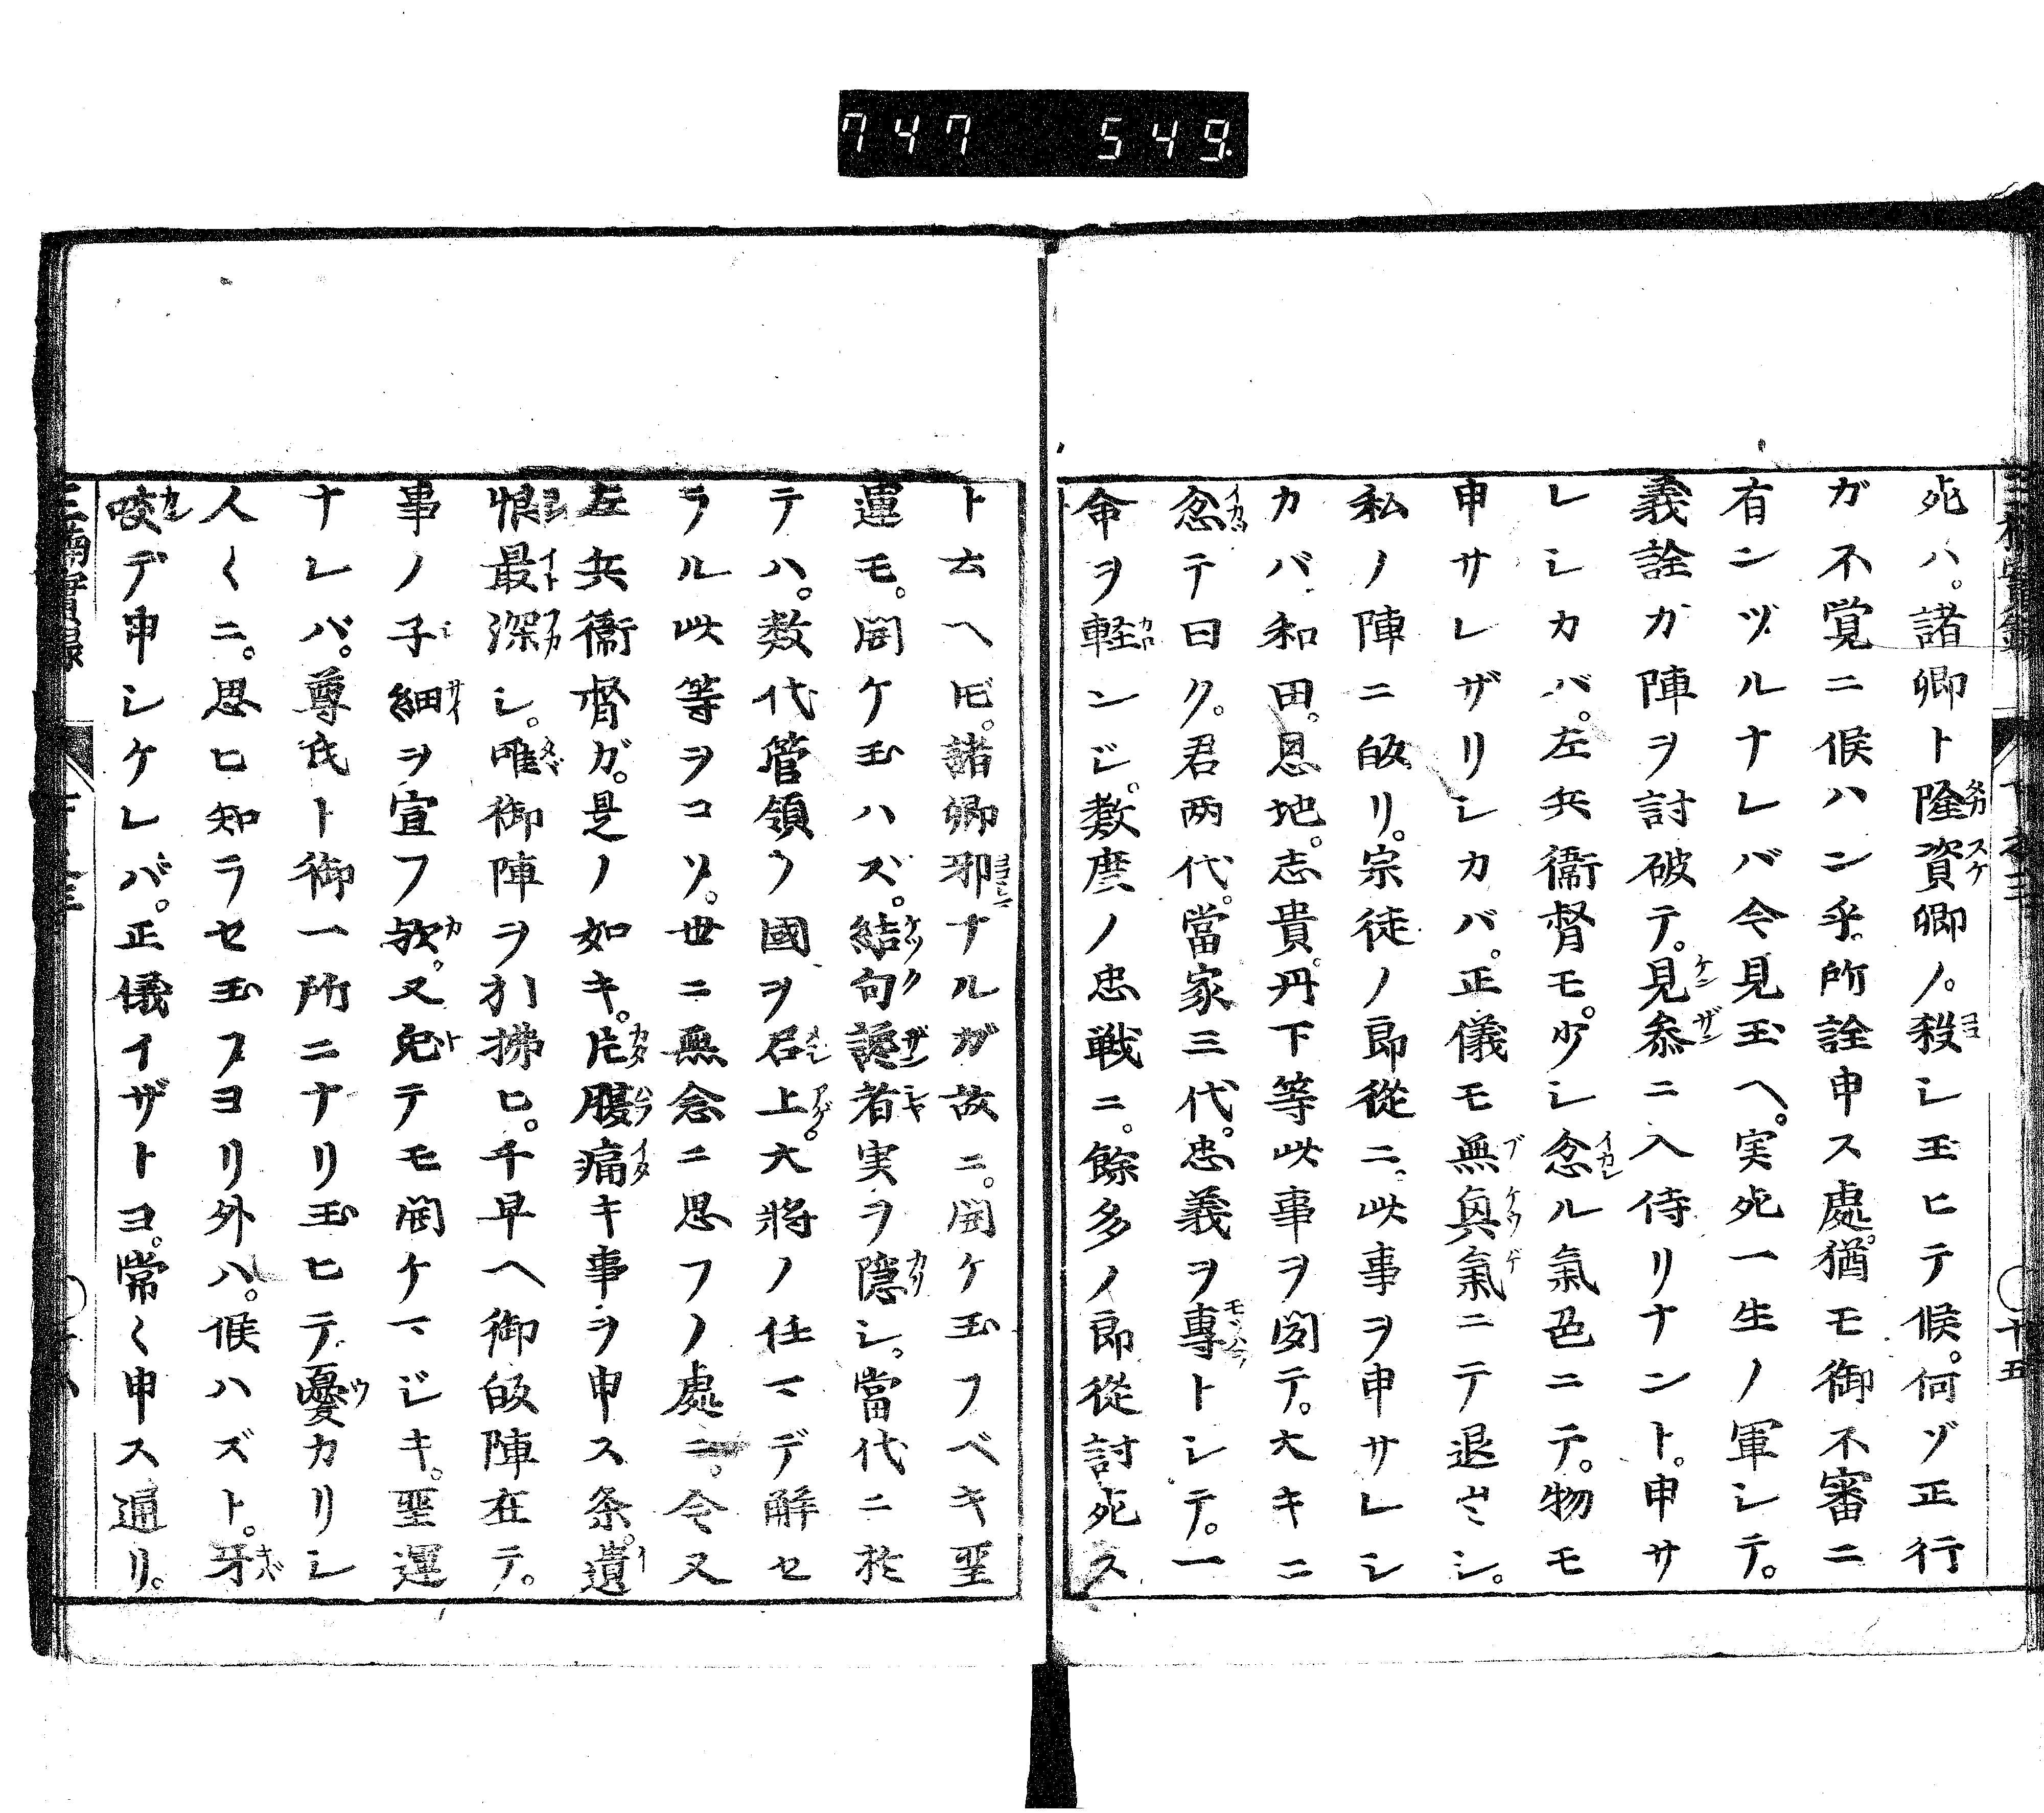 747 549.
死ハ。諸卿ト隆資卿ノ。殺シ玉ヒテ候。何ゾ正行
ガ不覚ニ候ハン乎。所詮申ス處。猶モ御不審ニ
有ンヅルナレバ今見玉ヘ。実死一生ノ軍シテ。
義詮ガ陣ヲ討破テ。見参ニ入侍リナント。申サ
レシカバ。左兵衞督モ。少シ忿ル氣色ニテ。物モ
申サレザリシカバ。正儀モ無真氣ニテ退出シ。
私ノ陣ニ皈リ。宗徒ノ郎從ニ。此事ヲ申サレシ
カバ、和田。恩地。志貴。丹下等此事ヲ聞テ。大キニ
忿テ曰ク。君両代。當家三代。忠義ヲ專トシテ。一
命ヲ軽ンジ。数度ノ忠戦ニ。餘多ノ郎從討死ス
ト云ヘ𪜈。諸卿邪ナルガ故ニ。開ケ玉フベキ聖
運モ。開ケ玉ハズ。結句讒者実ヲ隠シ。當代ニ於
テハ。数代管領ノ國ヲ召上。大將ノ任マデ解セ
ラル此等ヲコソ。世ニ無念ニ思フノ處ニ。今又
左兵衞督ガ。是ノ如キ。片腹痛キ事ヲ申ス条。遺
恨最深シ。唯御陣ヲ引拂ヒ。千早ヘ御皈陣在テ。
事ノ子細ヲ宣フ歟。又免テモ開ケマジキ。聖運
ナレバ。尊氏ト御一所ニナリ玉ヒテ。憂カリシ
人〱ニ。思ヒ知ラセ玉フヨリ外ハ。候ハズト。牙
咬デ申シケレバ。正儀イザトヨ。常〱申ス通リ。
十五